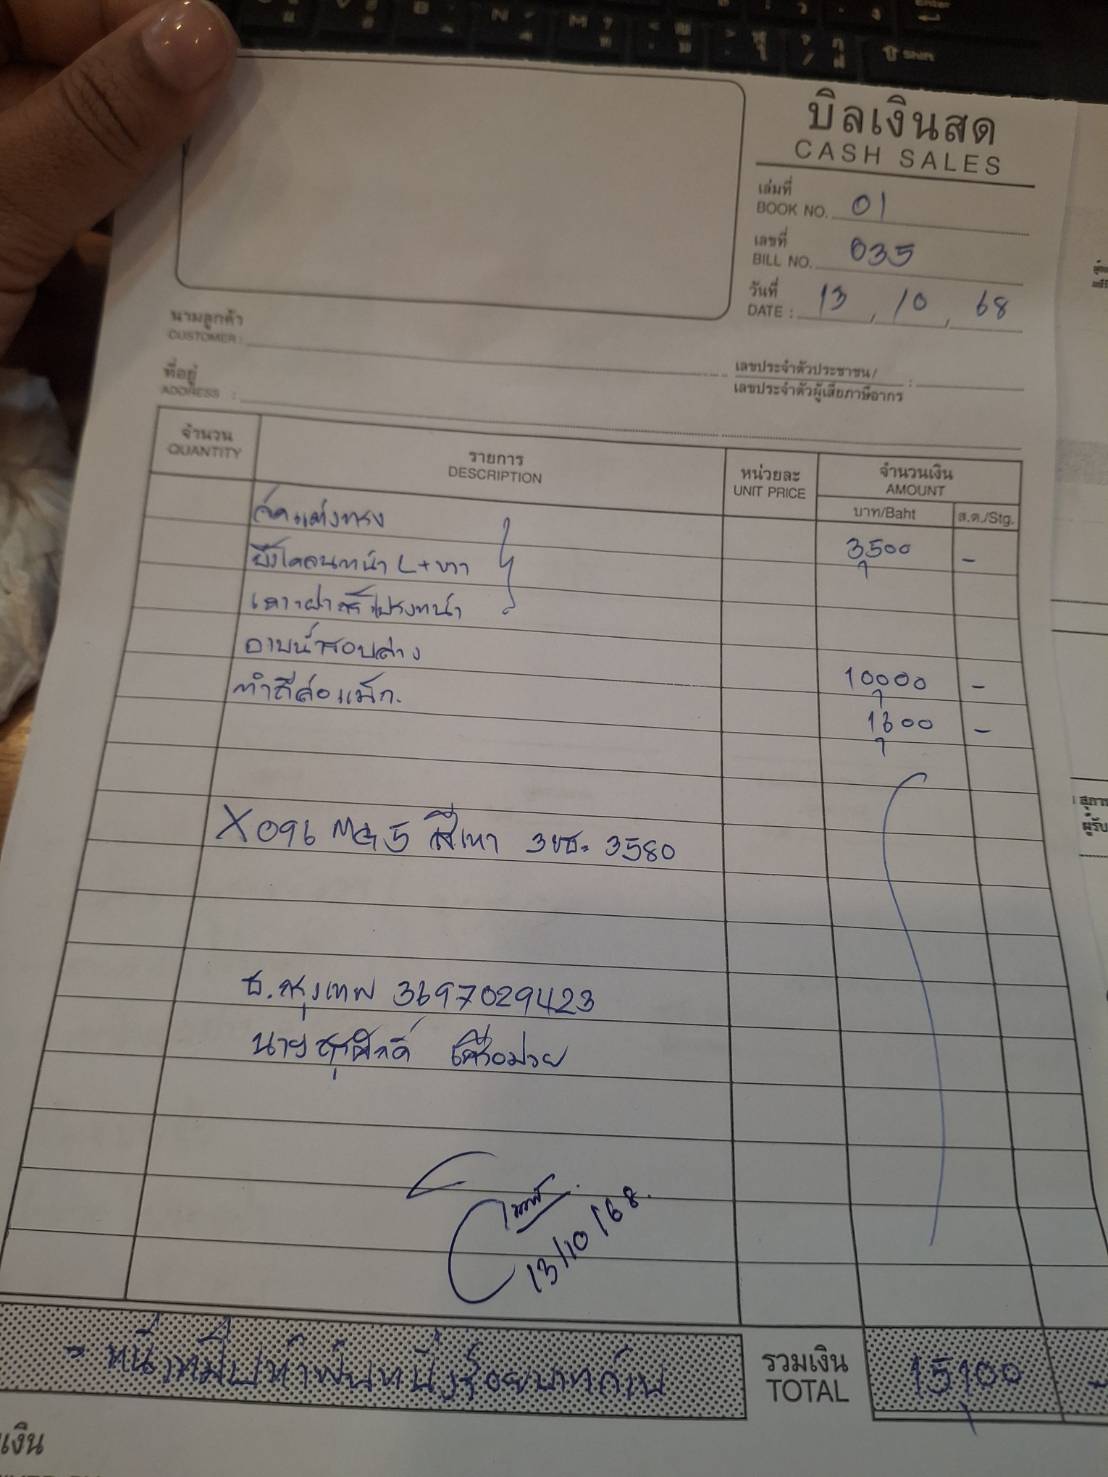 บิลเงินสด
CASH SALES
เล่มที่
BOOK NO. 01
เลขที่
BILL NO. 035
วันที่
DATE : 13 / 10 / 68
นามลูกค้า
CUSTOMER :
ที่อยู่
ADDRESS :
เลขประจำตัวประชาชน/
เลขประจำตัวผู้เสียภาษีอากร :
จำนวน
QUANTITY
รายการ
DESCRIPTION
หน่วยละ
UNIT PRICE
จำนวนเงิน
AMOUNT
บาท/Baht ส.ต./Stg.
3,500 -
หน้า L+ขวา
หน้า
อาบน้ำรอบล่าง 10,000 -
ทำสีล้อแม็ก. 1,600 -
X096 MG5 สีเทา 3ขธ. 3580
ธ.กรุงเทพ 3697029423
นาย
13/10/68.
- หนึ่งหมื่นห้าพันหนึ่งร้อยบาทถ้วน
รวมเงิน
TOTAL 15,100 -
เงิน